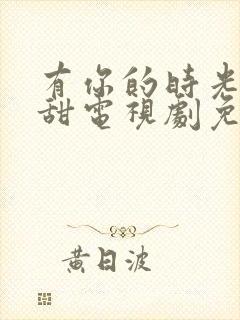 有你的時光
甜電視劇免
黃日波